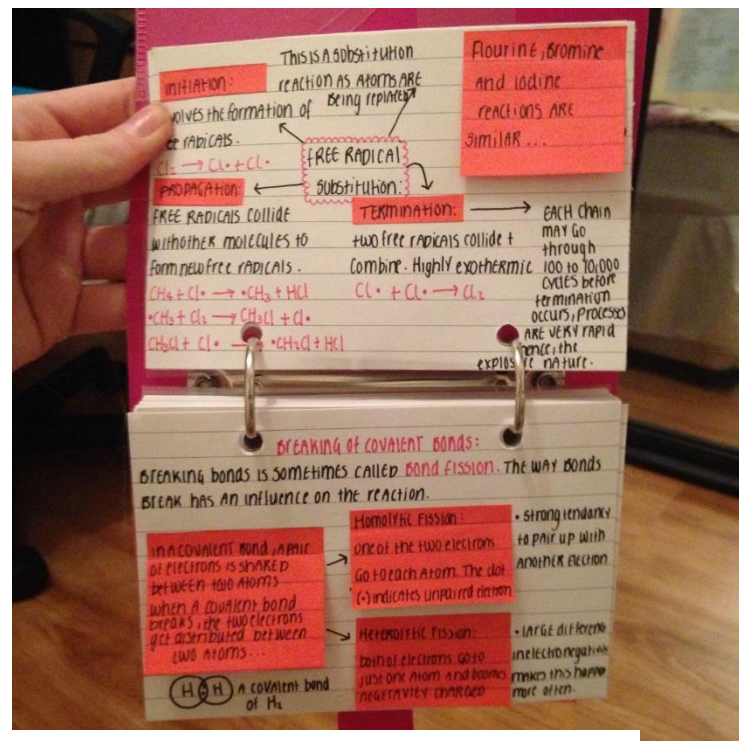 This is a substitution
reaction as atoms are
being replaced
Initiation:
volves the formation of
ee radicals.
Cl₂ → Cl• + Cl•
Flourine, Bromine
and iodine
reactions are
similar ...
FREE RADICAL
SUBSTITUTION:
PROPAGATION:
FREE RADICALS COLLIDE
with other molecules to
form new free radicals.
CH₄ + Cl• → •CH₃ + HCl
•CH₃ + Cl₂ → CH₃Cl + Cl•
CH₃Cl + Cl• → •CH₂Cl + HCl
TERMINATION:
two free radicals collide +
combine. Highly exothermic
Cl• + Cl• → Cl₂
EACH chain
may go
through
100 to 10,000
cycles before
termination
occurs, processes
are very rapid
hence, the
explosive nature.
BREAKING OF COVALENT BONDS:
Breaking bonds is sometimes called Bond fission. The way bonds
break has an influence on the reaction.
in a covalent bond, a pair
of electrons is shared
between two atoms
when a covalent bond
breaks, the two electrons
get distributed between
two atoms...
H H A covalent bond
of H₂
Homolytic Fission:
one of the two electrons
go to each atom. The dot
(•) indicates unpaired electron
• strong tendancy
to pair up with
another electron
Heterolytic Fission:
both of electrons go to
just one atom and becomes
negetavily charged
• large differenc
in electronegativi
makes this happen
more often.